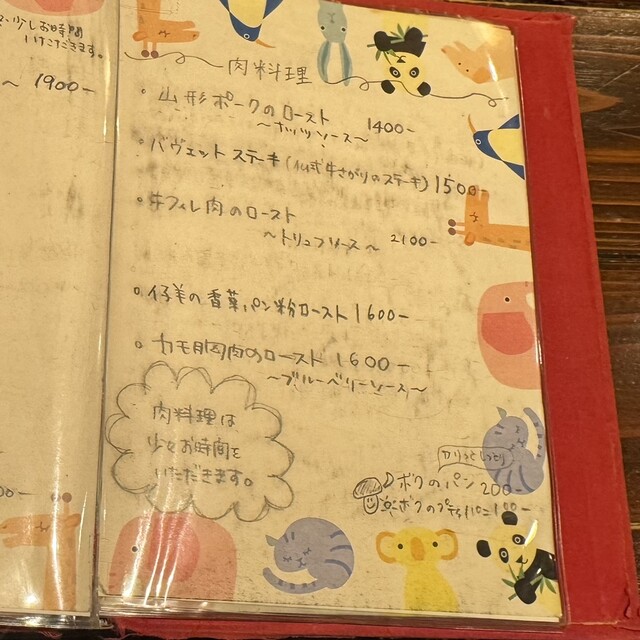 少しお時間
いただきます。
〜 1900-
肉料理
・山形ポークのロースト 1400-
〜ナッツソース〜
・バヴェットステーキ(仏式牛さがりのステーキ) 1500-
・牛フィレ肉のロースト
〜トリュフソース〜 2100-
・仔羊の香草パン粉ロースト 1600-
・カモ胸肉のロースト 1600-
〜ブルーベリーソース〜
肉料理は
少々お時間を
いただきます。
かりっとしっとり
ボクのパン 200-
ボクのプティパン 100-
00-